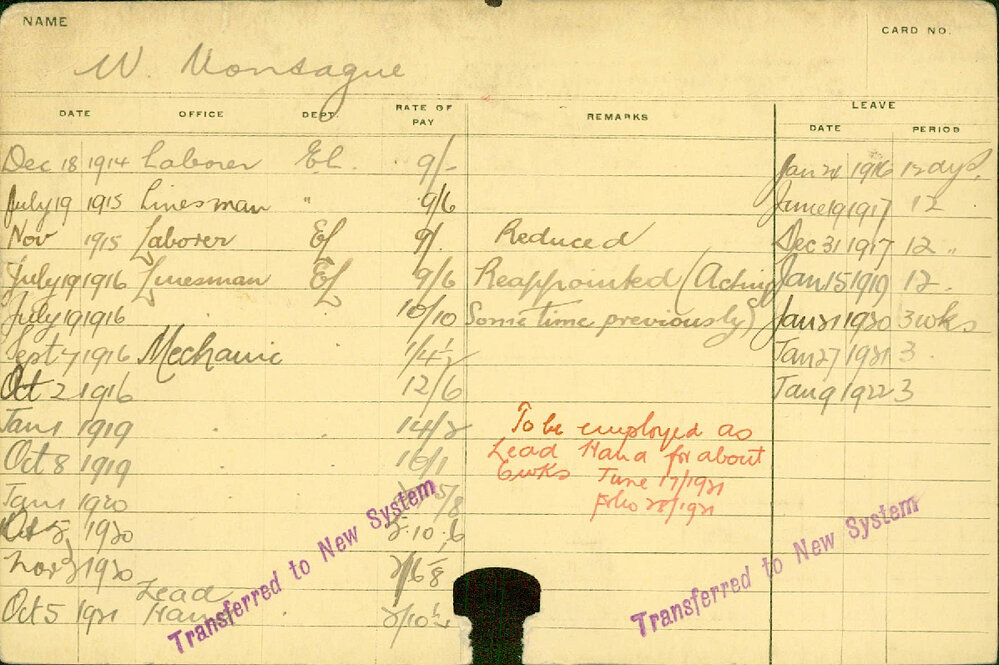 NAME
CARD NO.
W. Montague
DATE OFFICE DEPT. RATE OF PAY REMARKS LEAVE
DATE PERIOD
Dec 18 1914 Laborer El. 9/- Jan 24 1916 12 dys.
July 19 1915 Linesman " 9/6 June 19 1917 12
Nov 1915 Laborer El 9/. Reduced Dec 31 1917 12 "
July 19 1916 Linesman El 9/6 Reappointed (Acting Jan 15 1919 12.
July 19 1916 10/10 Sometime previously) Jan 21 1920 3 wks
Sept 7 1916 Mechanic 1/4½ Jan 27 1921 3
Oct 2 1916 12/6 Jan 9 1922 3
Jan 1 1919 14/2
Oct 8 1919 16/1
To be employed as
Lead Hand for about
6wks June 17/1921
folio 28/1921
Jan 1 1920 5/8
Oct 1920 5.10.6
Nov 1920 2/6
Oct 5 1921 Lead Hand 2/10
Transferred to New System
Transferred to New System